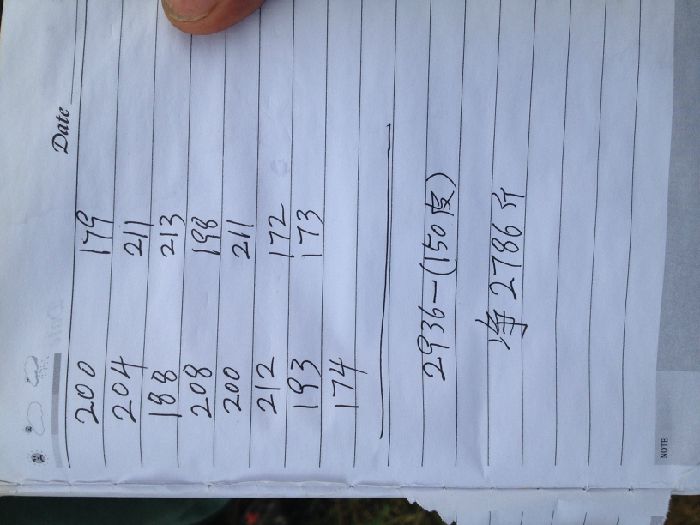 Date
200 179
204 211
188 213
208 198
200 211
212 172
193 173
174
2936-(150皮)
净2786斤
NOTE